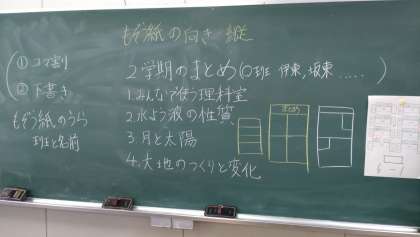 もぞう紙の向き 縦
① コマ割り
② 下書き
もぞう紙のうら
班と名前
2学期のまとめ(○班 伊東,坂東 .....)
1.みんなで使う理科室
2.水よう液の性質
3.月と太陽
4.大地のつくりと変化
まとめ
6-1